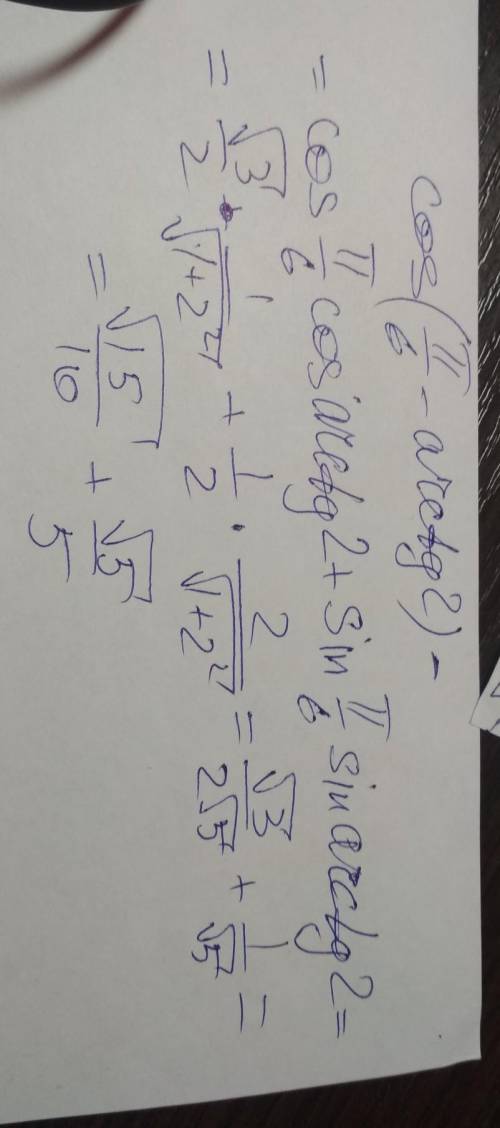 cos(π/6 - arctg2) -
= cos π/6 cos arctg2 + sin π/6 sin arctg2 =
= √3/2 · 1/√(1+2²) + 1/2 · 2/√(1+2²) = √3/(2√5) + 1/√5 =
= √15/10 + √5/5